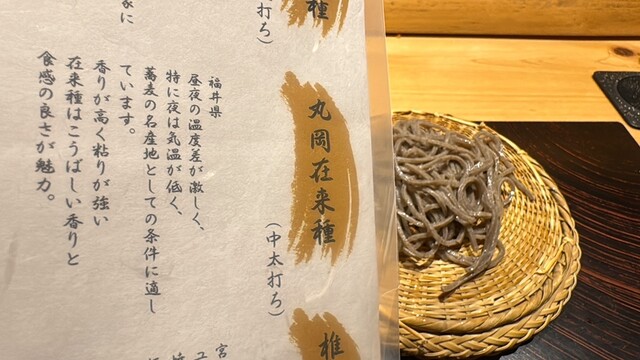 種
打ち）
家に
丸岡在来種
（中太打ち）
福井県
昼夜の温度差が激しく、
特に夜は気温が低く、
蕎麦の名産地としての条件に適し
ています。
香りが高く粘りが強い
在来種はこうばしい香りと
食感の良さが魅力。
椎
宮